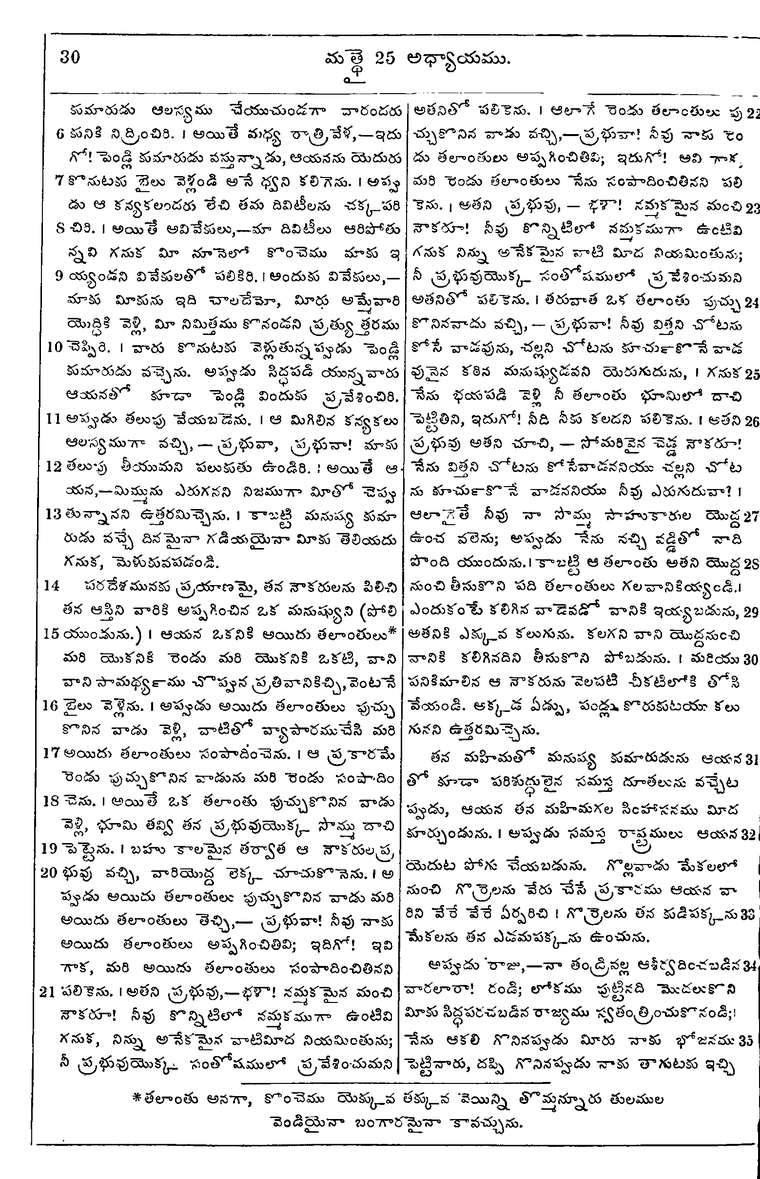 30
మత్థై 25 అధ్యాయము.
కుమారుడు ఆలస్యము చేయుచుండగా వారందరు
6 కునికి నిద్రించిరి. । అయితే మధ్య రాత్రివేళ,—ఇదు
గో! పెండ్లి కుమారుడు వస్తున్నాడు, ఆయనను యెదురు
7 కొనుటకు బైలు వెళ్లండి అనే ధ్వని కలిగెను. । అప్పు
డు ఆ కన్యకలందరు లేచి తమ దివిటీలను చక్కపరి
8 చిరి. । అయితే అవివేకులు,—మా దివిటీలు ఆరిపోతు
న్నవి గనుక మీ నూనెలో కొంచెము మాకు ఇ
9 య్యండని వివేకులతో పలికిరి. । అందుకు వివేకులు,—
మాకు మీకును ఇది చాలదేమో, మీరు అమ్మేవారి
యొద్దికి వెళ్లి, మీ నిమిత్తము కొనండని ప్రత్యుత్తరము
10 చెప్పిరి. । వారు కొనుటకు వెళ్లుతున్నప్పుడు పెండ్లి
కుమారుడు వచ్చెను. అప్పుడు సిద్ధపడి యున్నవారు
ఆయనతో కూడా పెండ్లి విందుకు ప్రవేశించిరి.
11 అప్పుడు తలుపు వేయబడెను. । ఆ మిగిలిన కన్యకలు
ఆలస్యముగా వచ్చి, — ప్రభువా, ప్రభువా! మాకు
12 తలుపు తీయుమని పలుకుతు ఉండిరి. । అయితే ఆ
యన,—మిమ్మును ఎరుగనని నిజముగా మీతో చెప్పు
13 తున్నానని ఉత్తరమిచ్చెను. । కాబట్టి మనుష్య కుమా
రుడు వచ్చే దినమైనా గడియయైనా మీకు తెలియదు
గనుక, మెళుకువపడండి.
14 పరదేశమునకు ప్రయాణమై, తన నౌకరులను పిలిచి
తన ఆస్తిని వారికి అప్పగించిన ఒక మనుష్యుని (పోలి
15 యుండును.) । ఆయన ఒకనికి అయిదు తలాంతులు*
మరి యొకనికి రెండు మరి యొకనికి ఒకటి, వాని
వాని సామర్థ్యము చొప్పున ప్రతివానికిచ్చి, వెంటనే
16 బైలు వెళ్లెను. । అప్పుడు అయిదు తలాంతులు పుచ్చు
కొనిన వాడు వెళ్లి, వాటితో వ్యాపారముచేసి మరి
17 అయిదు తలాంతులు సంపాదించెను. । ఆ ప్రకారమే
రెండు పుచ్చుకొనిన వాడును మరి రెండు సంపాదిం
18 చెను. । అయితే ఒక తలాంతు పుచ్చుకొనిన వాడు
వెళ్లి, భూమి తవ్వి తన ప్రభువుయొక్క సొమ్ము దాచి
19 పెట్టెను. । బహు కాలమైన తర్వాత ఆ నౌకరుల ప్ర
20 భువు వచ్చి, వారియొద్ద లెక్క చూచుకొనెను. । అ
ప్పుడు అయిదు తలాంతులు పుచ్చుకొనిన వాడు మరి
అయిదు తలాంతులు తెచ్చి,— ప్రభువా! నీవు నాకు
అయిదు తలాంతులు అప్పగించితివి; ఇదిగో! ఇవి
గాక, మరి అయిదు తలాంతులు సంపాదించితినని
21 పలికెను. । అతని ప్రభువు,—భళా! నమ్మకమైన మంచి
నౌకరూ! నీవు కొన్నిటిలో నమ్మకముగా ఉంటివి
గనుక, నిన్ను అనేకమైన వాటిమీద నియమింతును;
నీ ప్రభువుయొక్క సంతోషములో ప్రవేశించుమని
అతనితో పలికెను. । ఆలాగే రెండు తలాంతులు పు 22
చ్చుకొనిన వాడు వచ్చి,—ప్రభువా! నీవు నాకు రెం
డు తలాంతులు అప్పగించితివి; ఇదుగో! అవి గాక,
మరి రెండు తలాంతులు నేను సంపాదించితినని పలి
కెను. । అతని ప్రభువు, — భళా! నమ్మకమైన మంచి 23
నౌకరూ! నీవు కొన్నిటిలో నమ్మకముగా ఉంటివి
గనుక నిన్ను అనేకమైన వాటి మీద నియమింతును;
నీ ప్రభువుయొక్క సంతోషములో ప్రవేశించుమని
అతనితో పలికెను. । తరువాత ఒక తలాంతు పుచ్చు 24
కొనినవాడు వచ్చి, — ప్రభువా! నీవు విత్తని చోటను
కోసే వాడవును, చల్లని చోటను కూచుర్కొనే వాడ
వునైన కఠిన మనుష్యుడవని యెరుగుదును, । గనుక 25
నేను భయపడి వెళ్లి నీ తలాంతు భూమిలో దాచి
పెట్టితిని, ఇదుగో! నీది నీకు కలదని పలికెను. । అతని 26
ప్రభువు అతని చూచి, — సోమరివైన చెడ్డ నౌకరూ!
నేను విత్తని చోటను కోసేవాడననియు చల్లని చోట
ను కూచుర్కొనే వాడననియు నీవు ఎరుగుదువా? ।
ఆలాగైతే నీవు నా సొమ్ము సాహుకారుల యొద్ద 27
ఉంచ వలెను; అప్పుడు నేను వచ్చి వడ్డితో నాది
పొంది యుందును. । కాబట్టి ఆ తలాంతు అతని యొద్ద 28
నుంచి తీసుకొని పది తలాంతులు గలవానికియ్యండి. ।
ఎందుకంటే కలిగిన వాడెవడో వానికి ఇయ్యబడును, 29
అతనికి ఎక్కువ కలుగును. కలగని వాని యొద్దనుంచి
వానికి కలిగినదిని తీసుకొని పోబడును. । మరియు 30
పనికిమాలిన ఆ నౌకరును వెలపటి చీకటిలోకి తోసి
వేయండి. అక్కడ ఏడ్పు, పండ్లు కొరుకుటయా కలు
గునని ఉత్తరమిచ్చెను.
తన మహిమతో మనుష్య కుమారుడును ఆయన 31
తో కూడా పరిశుద్ధులైన సమస్త దూతలును వచ్చేట
ప్పుడు, ఆయన తన మహిమగల సింహాసనము మీద
కూర్చుండును. । అప్పుడు సమస్త రాష్ట్రములు ఆయన 32
యెదుట పోగు చేయబడును. గొల్లవాడు మేకలలో
నుంచి గొర్రెలను వేరు చేసే ప్రకారము ఆయన వా
రిని వేరే వేరే ఏర్పరిచి । గొర్రెలను తన కుడిపక్కను 33
మేకలను తన ఎడమపక్కను ఉంచును.
అప్పుడు రాజు,—నా తండ్రివల్ల ఆశీర్వదించబడిన 34
వారలారా! రండి; లోకము పుట్టినది మొదలుకొని
మీకు సిద్ధపరచబడిన రాజ్యము స్వతంత్రించుకొనండి; ।
నేను ఆకలి గొనినప్పుడు మీరు నాకు భోజనము 35
పెట్టినారు, దప్పి గొనినప్పుడు నాకు తాగుటకు ఇచ్చి
*తలాంతు అనగా, కొంచెము యెక్కువ తక్కువ వెయిన్ని తొమ్మన్నూరు తులముల
వెండియైనా బంగారమైనా కావచ్చును.